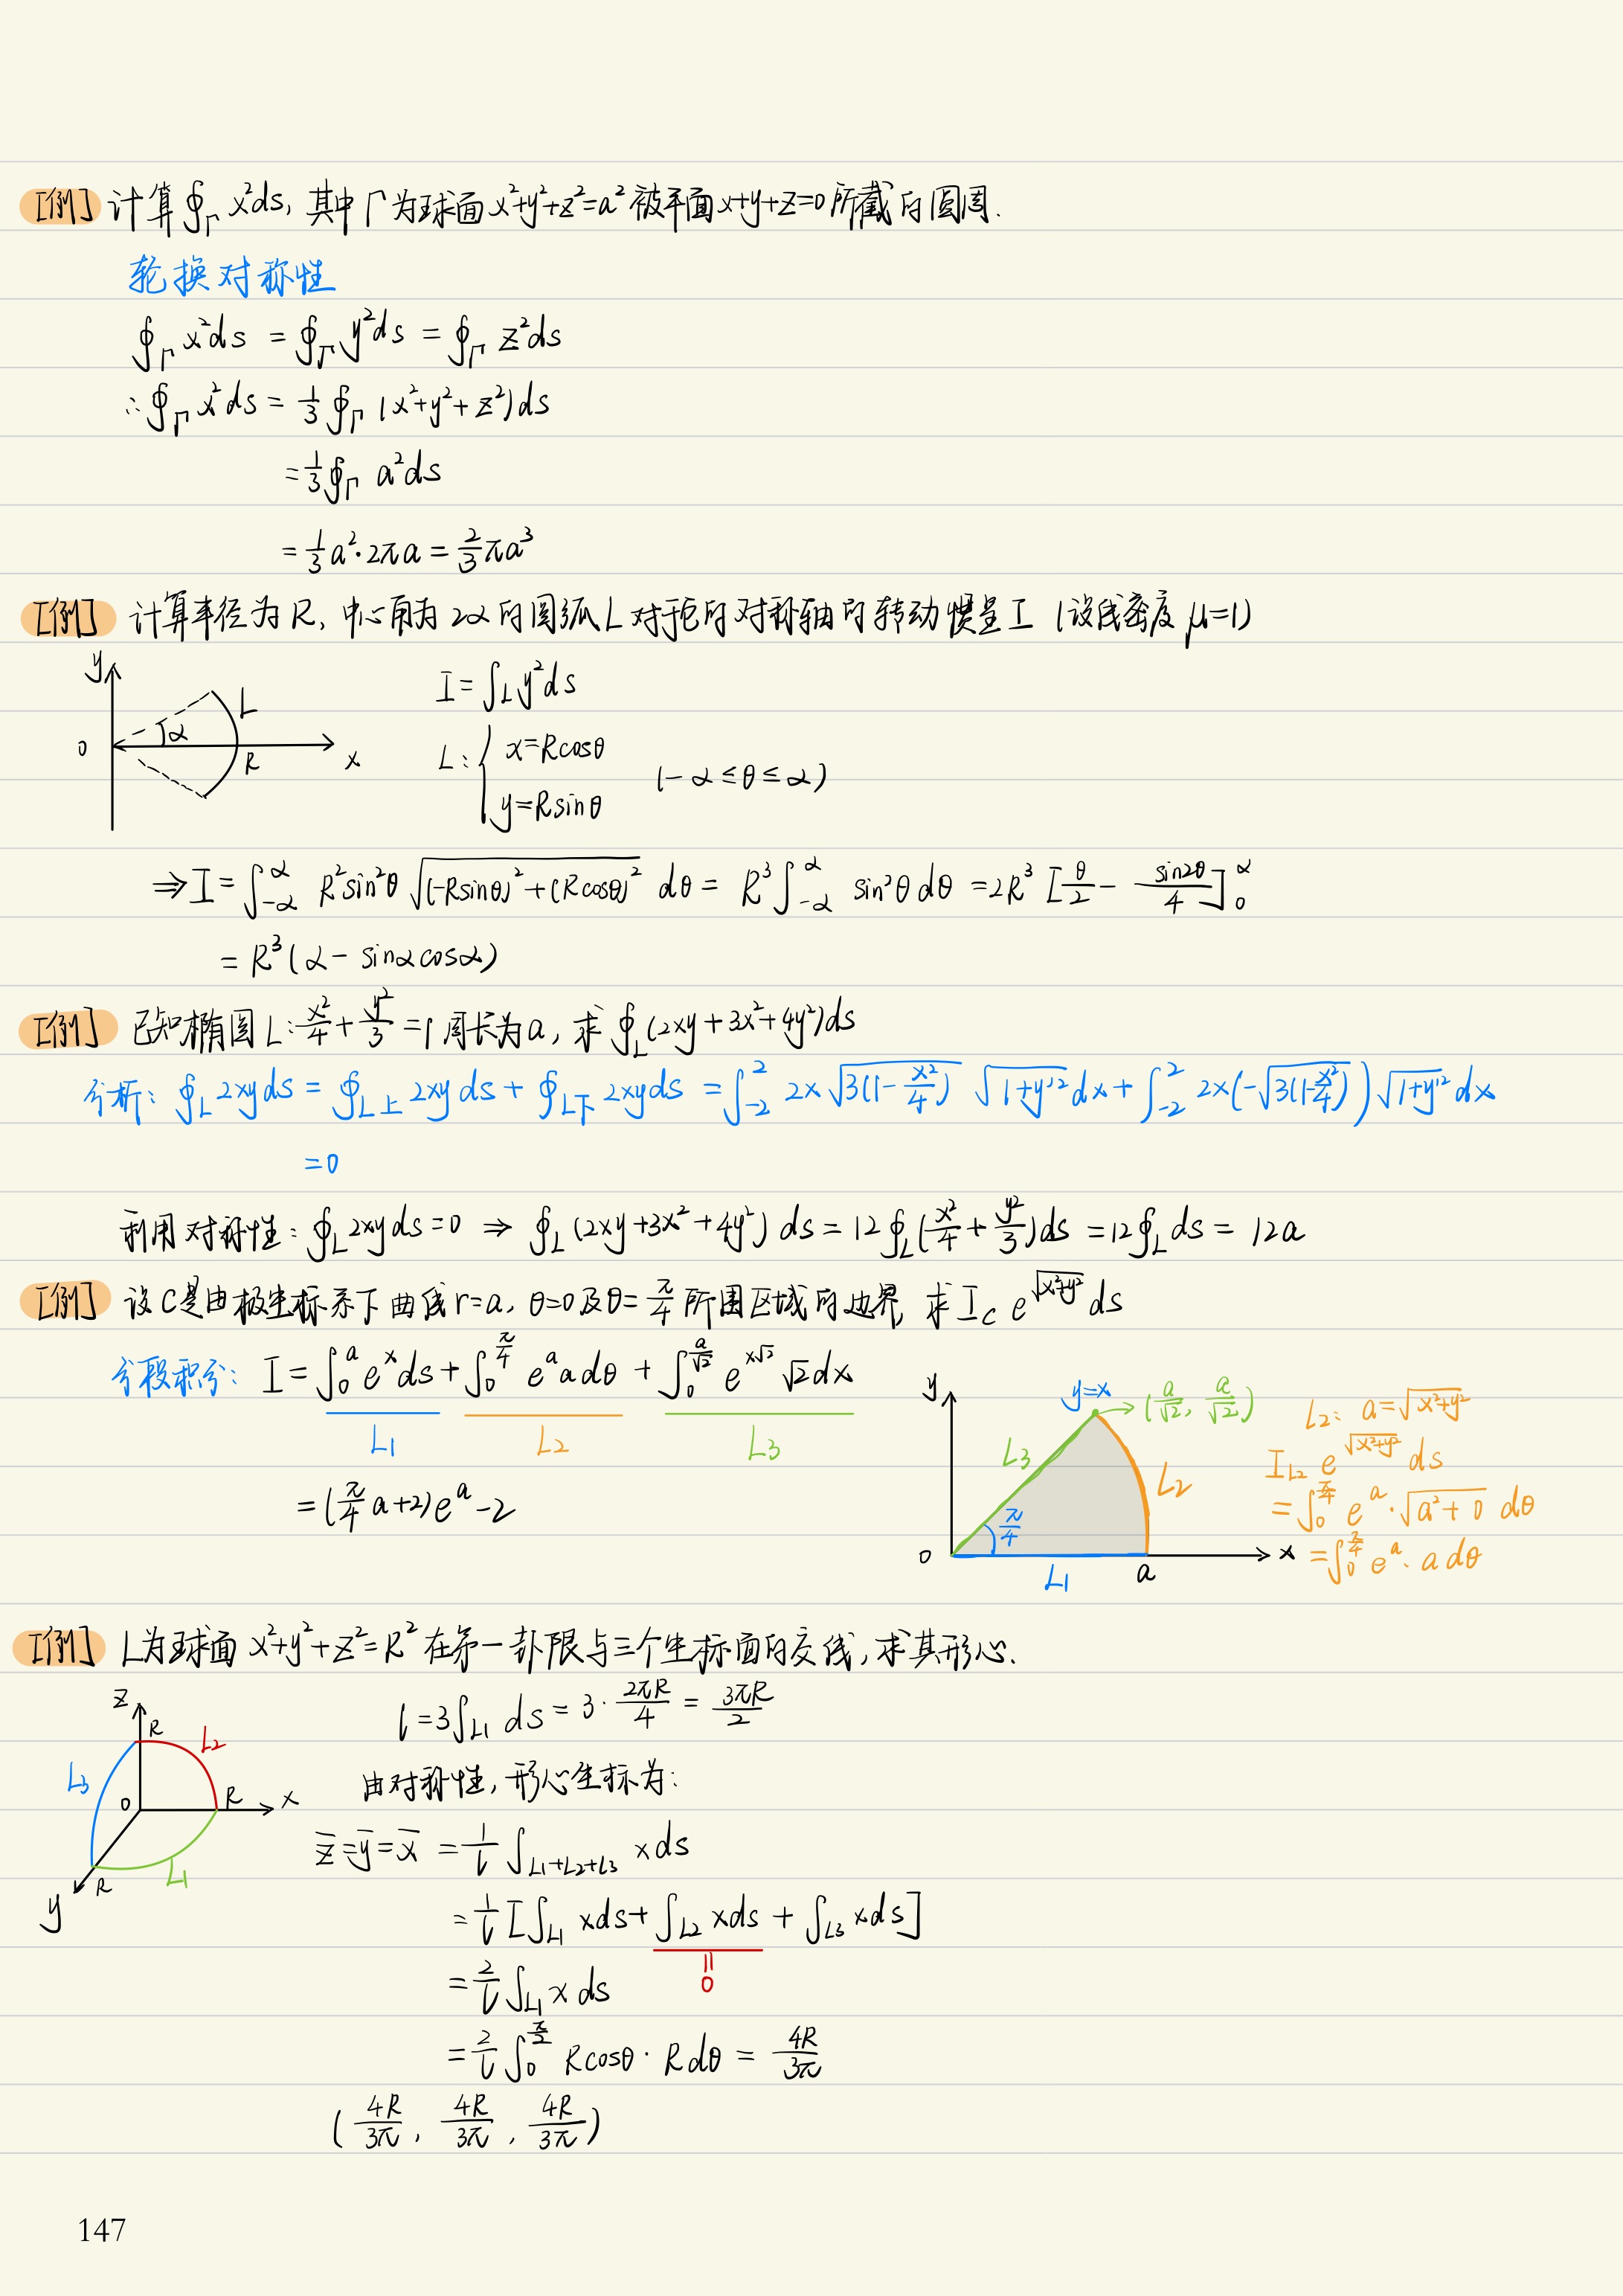 [例] 计算∮_Γ x²ds, 其中Γ为球面x²+y²+z²=a²被平面x+y+z=0所截的圆周.
轮换对称性
∮_Γ x²ds = ∮_Γ y²ds = ∮_Γ z²ds
∴∮_Γ x²ds = 1/3 ∮_Γ (x²+y²+z²)ds
= 1/3 ∮_Γ a²ds
= 1/3 a²·2πa = 2/3 πa³
[例] 计算半径为R, 中心角为2α的圆弧L对于它的对称轴的转动惯量I (设线密度μ=1)
y
0
α
L
R
x
I = ∫_L y²ds
L: { x=Rcosθ
y=Rsinθ (-α≤θ≤α)
⇒ I = ∫_{-α}^{α} R²sin²θ √((-Rsinθ)²+(Rcosθ)²) dθ = R³∫_{-α}^{α} sin²θ dθ = 2R³ [θ/2 - sin2θ/4]_0^α
= R³(α - sinαcosα)
[例] 已知椭圆L: x²/4 + y²/3 = 1 周长为a, 求∮_L(2xy+3x²+4y²)ds
分析: ∮_L 2xyds = ∮_{L上} 2xyds + ∮_{L下} 2xyds = ∫_{-2}^{2} 2x√(3(1-x²/4)) √(1+y'²)dx + ∫_{-2}^{2} 2x(-√(3(1-x²/4)))√(1+y'²)dx
=0
利用对称性: ∮_L 2xyds=0 ⇒ ∮_L (2xy+3x²+4y²)ds = 12∮_L(x²/4+y²/3)ds = 12∮_L ds = 12a
[例] 设C是由极坐标系下曲线r=a, θ=0及θ=π/4所围区域的边界, 求I_C e^{√(x²+y²)} ds
分段积分: I = ∫_0^a e^x ds + ∫_0^{π/4} e^a a dθ + ∫_0^{a/√2} e^{x√2} √2 dx
L1 L2 L3
= (π/4 a+2)e^a - 2
y
y=x
→(a/√2, a/√2)
L3
L2
π/4
0
L1
a
x
L2: a=√(x²+y²)
I_{L2} e^{√(x²+y²)} ds
= ∫_0^{π/4} e^a·√(a²+0) dθ
= ∫_0^{π/4} e^a·a dθ
[例] L为球面x²+y²+z²=R²在第一卦限与三个坐标面的交线, 求其形心.
z
R
L2
L3
0
R
x
R
L1
y
l = 3∫_{L1} ds = 3·2πR/4 = 3πR/2
由对称性, 形心坐标为:
z̄=ȳ=x̄ = 1/l ∫_{L1+L2+L3} xds
= 1/l [∫_{L1} xds + ∫_{L2} xds + ∫_{L3} xds]
=0
= 2/l ∫_{L1} x ds
= 2/l ∫_0^{π/2} Rcosθ·Rdθ = 4R/3π
(4R/3π, 4R/3π, 4R/3π)
147